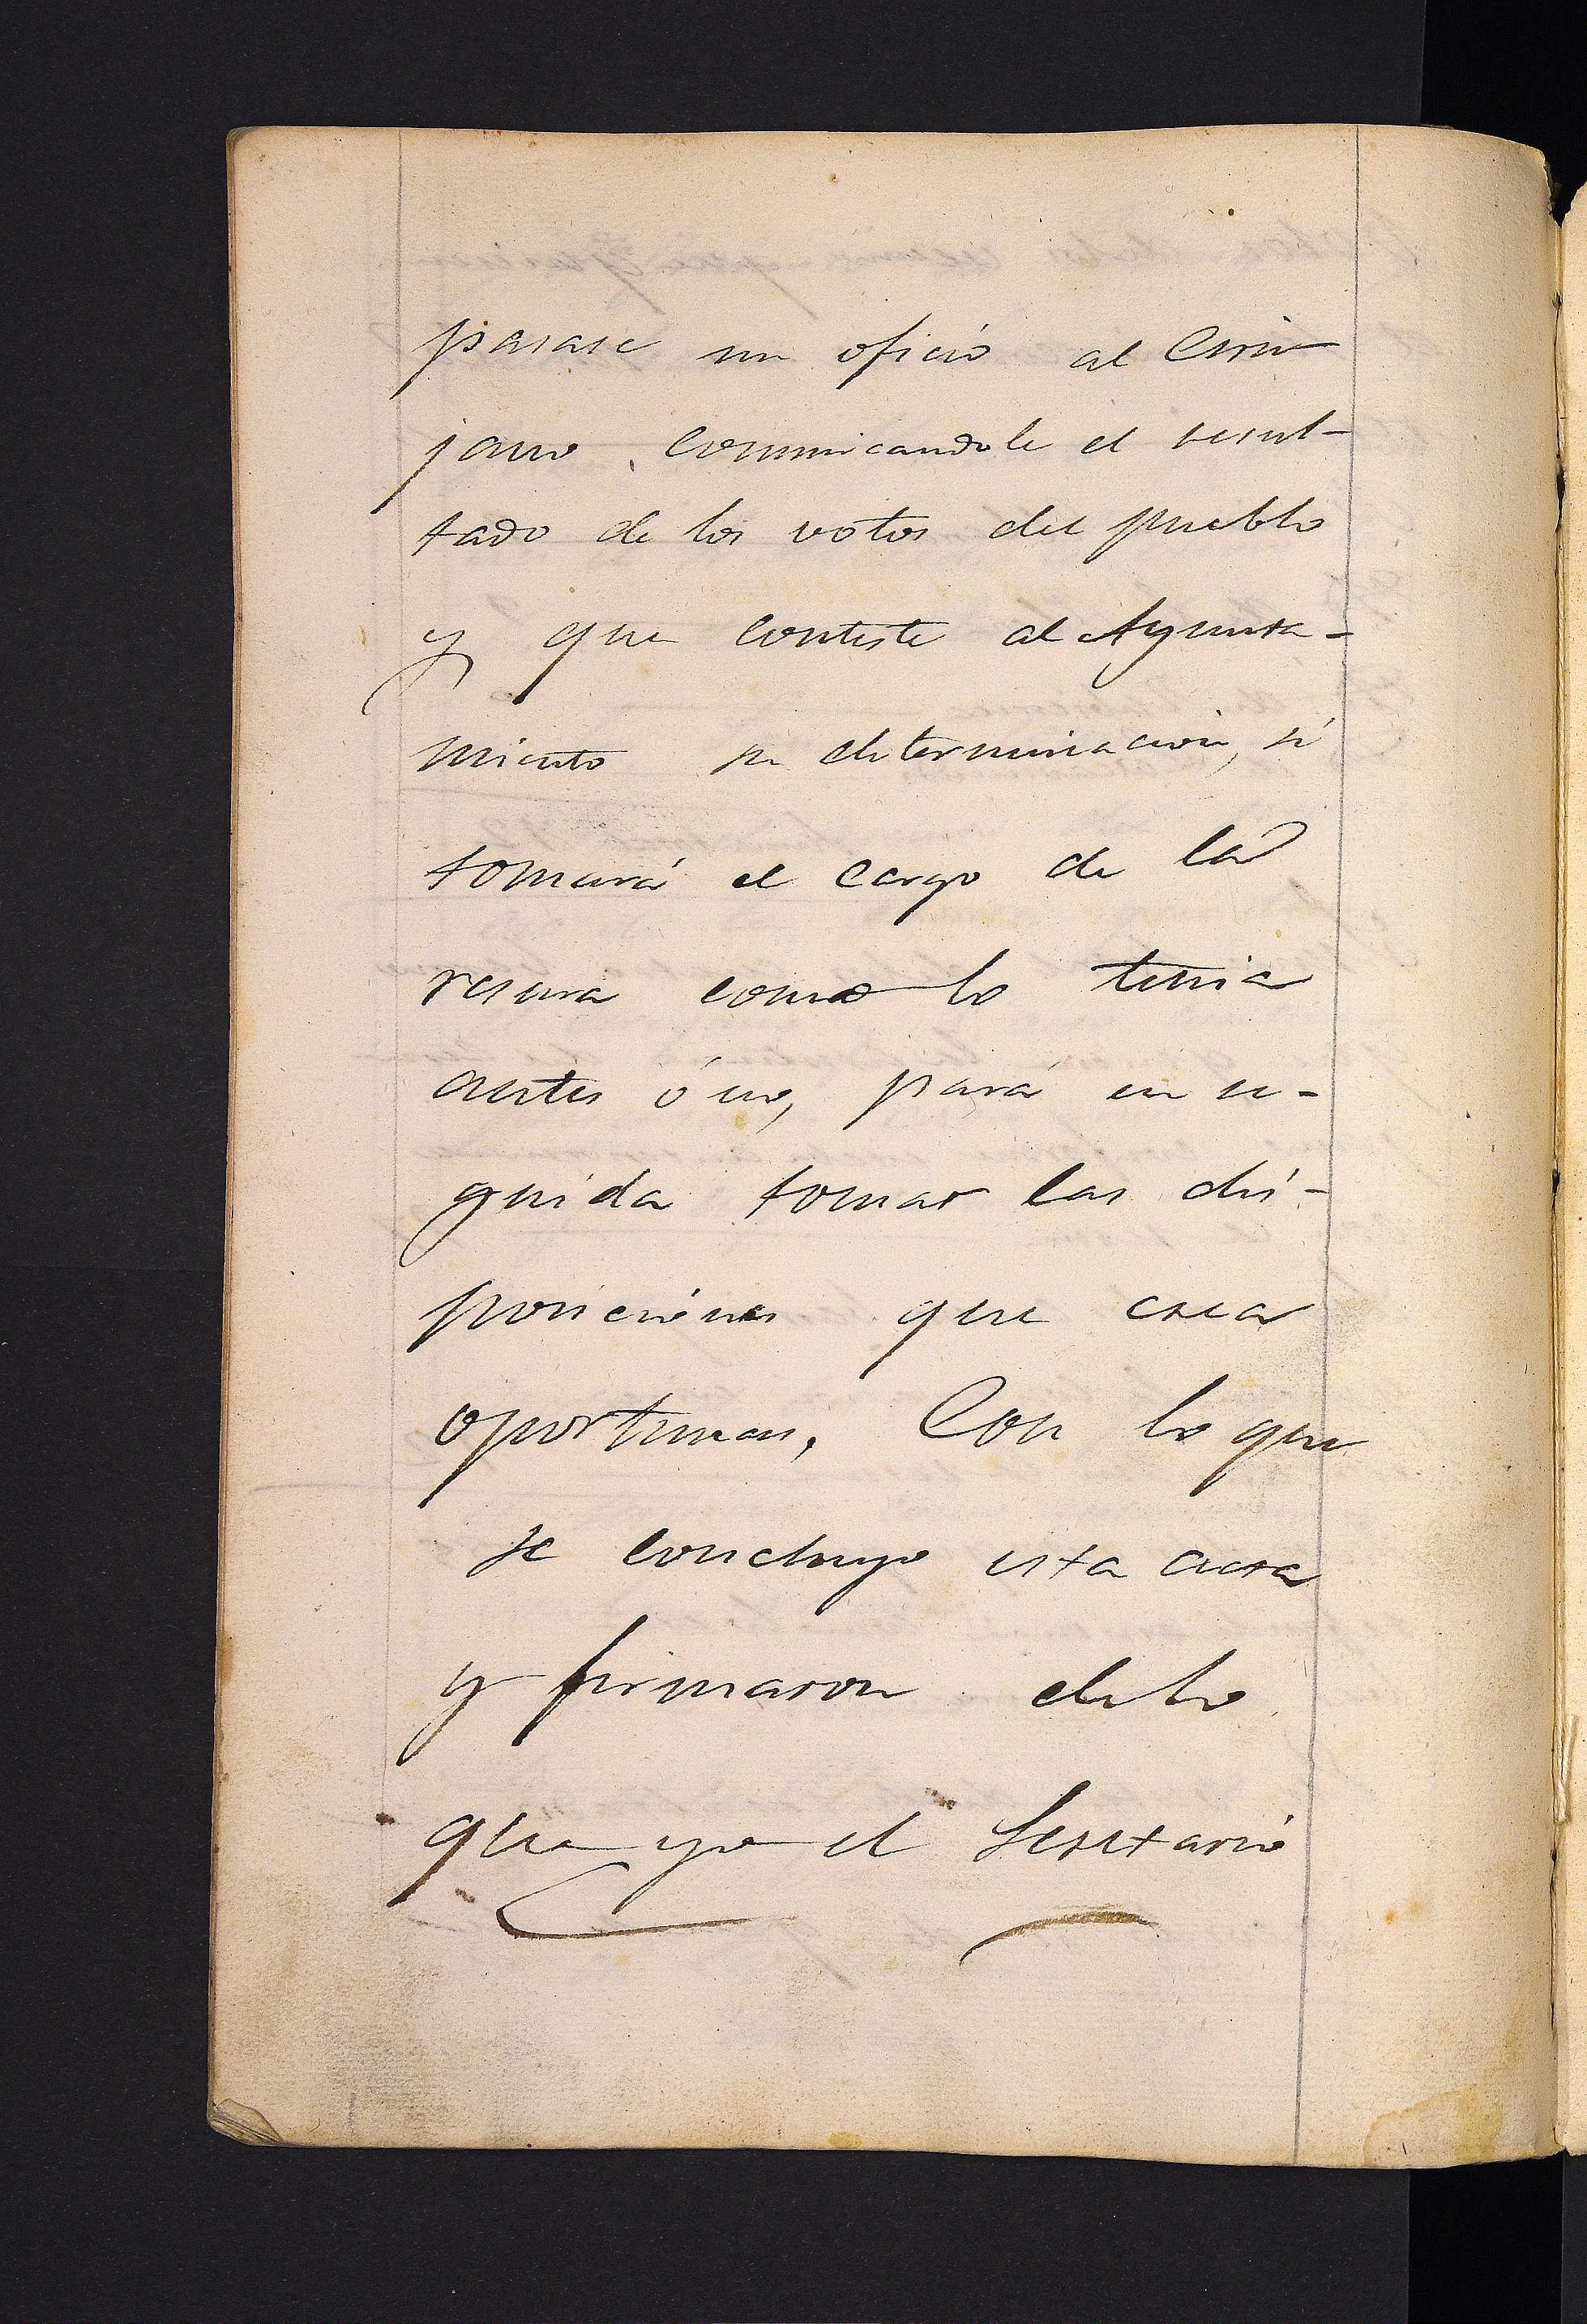 pasase un oficio al Ciru
jano, comunicandole el resul-
tado de los votos del pueblo
y que conteste al Ayunta-
miento su determinacion, si
tomará el cargo de la
rasura como lo tenia
antes ó no, pará en se-
guida tomar las dis-
posiciones que crea
oportunas. Con lo que
se concluyo esta acta
y firmaron de lo
que yo el Secretario